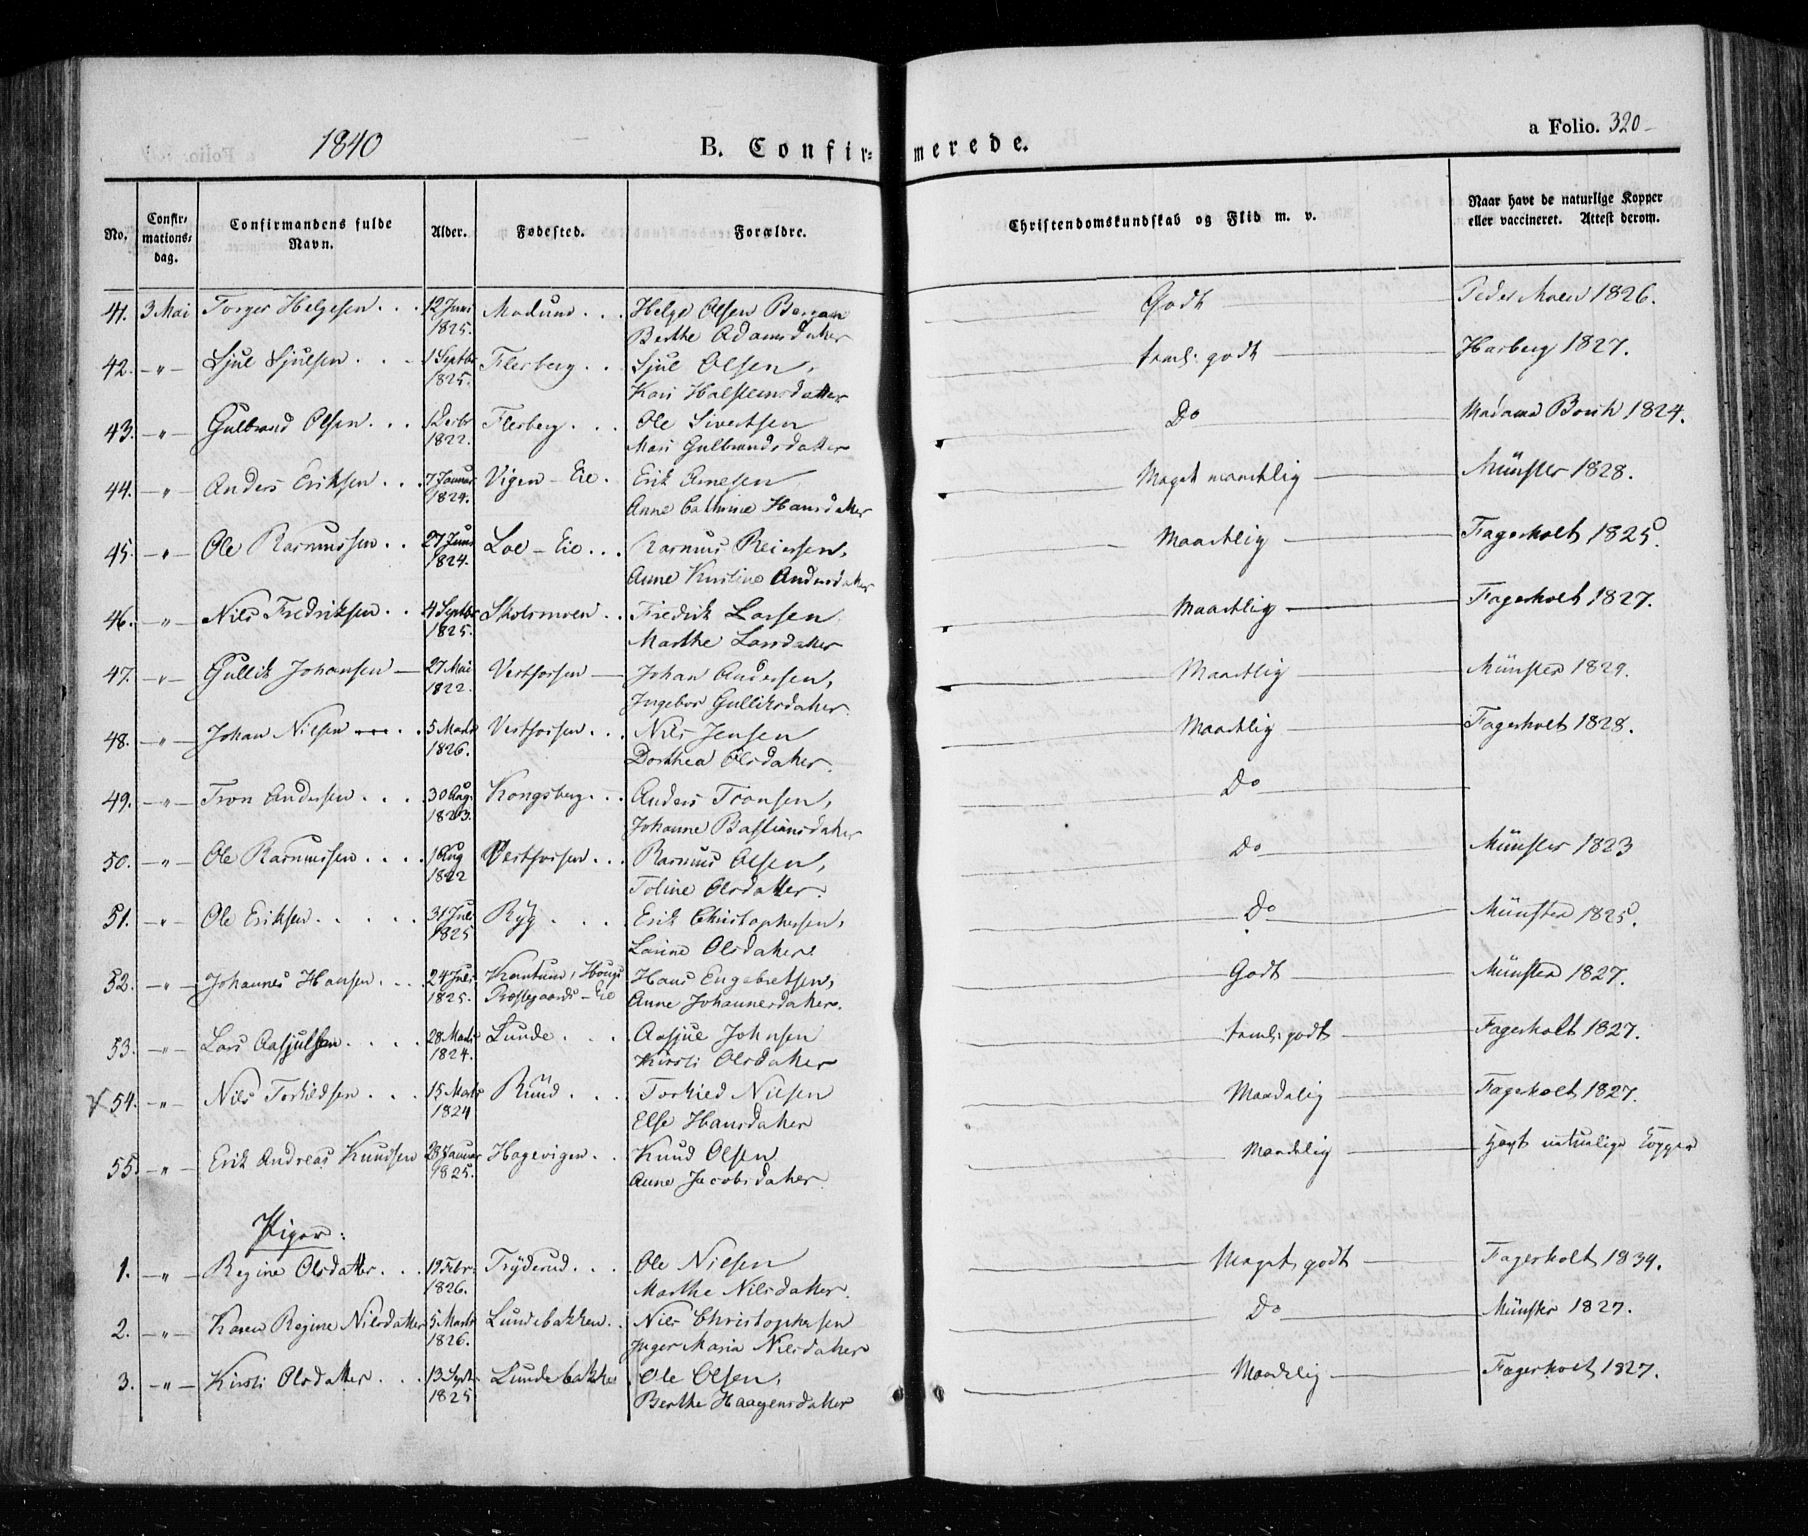 1840 B. Confir- merede. a Folio. 320
No. Confirmations-dag. Confirmandens fulde Navn. Alder. Fødested. Forældre. Christendomskundskab og Flid m. v. Naar havt de naturlige Kopper eller vaccineret. Attest derom.
41. 3 Mai Torger Helgesen 12 Juni Modum Helge Olsen Bergan Godt Peder Moen 1826.
1825. Berthe Adamsdatter
42. -"- Sjul Sjulsen 1 Septbr Flesberg Sjul Olsen, temli: godt Harberg 1827.
1825. Kari Halsteinsdatter
43. -"- Gulbrand Olsen 1 Decbr Flesberg Ole Sivertsen Do Madame Bonk 1824.
1822. Mari Gulbrandsdatter
44. -"- Anders Eriksen 7 Januar Vigen-Eie Erik Arnesen Meget maadelig Münster 1828.
1824. Anne Cathrine Hansdatter
45. -"- Ole Rasmussen 27 Juni Loe-Eie Rasmus Reiersen, Maadelig Fagerholt 1825.
1824. Anne Kirstine Andersdatter
46. -"- Nils Fredriksen 4 Septbr Skotsmoen Fredrik Larsen Maadelig Fagerholt 1827.
1825. Marthe Larsdatter
47. -"- Gullik Johansen 27 Mai Vestfossen Johan Andersen, Maadelig Münster 1829.
1822. Ingebor Gulliksdatter.
48. -"- Johan Nilsen 5 Marts Vestfossen Nils Jensen Maadelig Fagerholt 1828.
1826. Dorthea Olsdatter.
49. -"- Tron Andersen 30 Aug. Kongsberg Anders Tronsen, Do
1823. Johanne Bastiansdatter
50. -"- Ole Rasmussen 1 Aug Vestfossen Rasmus Olsen, Do Münster 1823
1822 Toline Olsdatter.
51. -"- Ole Eriksen 31 Juli Ryg Erik Christophersen, Do Münster 1825.
1825 Larine Olsdatter.
52. -"- Johannes Hansen 24 Juli Komtum, Hougs Hans Engebretsen, Godt Münster 1827.
1825. Præstegaards-Eie Anne Johannesdatter.
53. -"- Lars Aasjulsen 28 Marts Lunde Aasjul Johnsen temli: godt Fagerholt 1827.
1824. Kirsti Olsdatter
54. -"- Nils Torkildsen 15 Marts Ruud Torkild Nilsen Maadelig Fagerholt 1827.
1824 Else Hansdatter
55. -"- Erik Andreas Knudsen 28 Januar Hagevigen Knud Olsen Maadelig Havt naturlige Kopper
1825. Anne Jacobsdatter
Piger:
1. -"- Regine Olsdatter 19 Febr. Tryderud Ole Nilsen Meget godt Fagerholt 1834.
1826. Marthe Nilsdatter.
2. -"- Karen Regine Nilsdatter 5 Marts Lundebakken Nils Christophersen Do Münster 1827.
1826. Inger Maria Nilsdatter
3. -"- Kirsti Olsdatter 13 Sept. Lundebakken Ole Olsen, Maadelig Fagerholt 1827.
1825 Berthe Haagensdatter